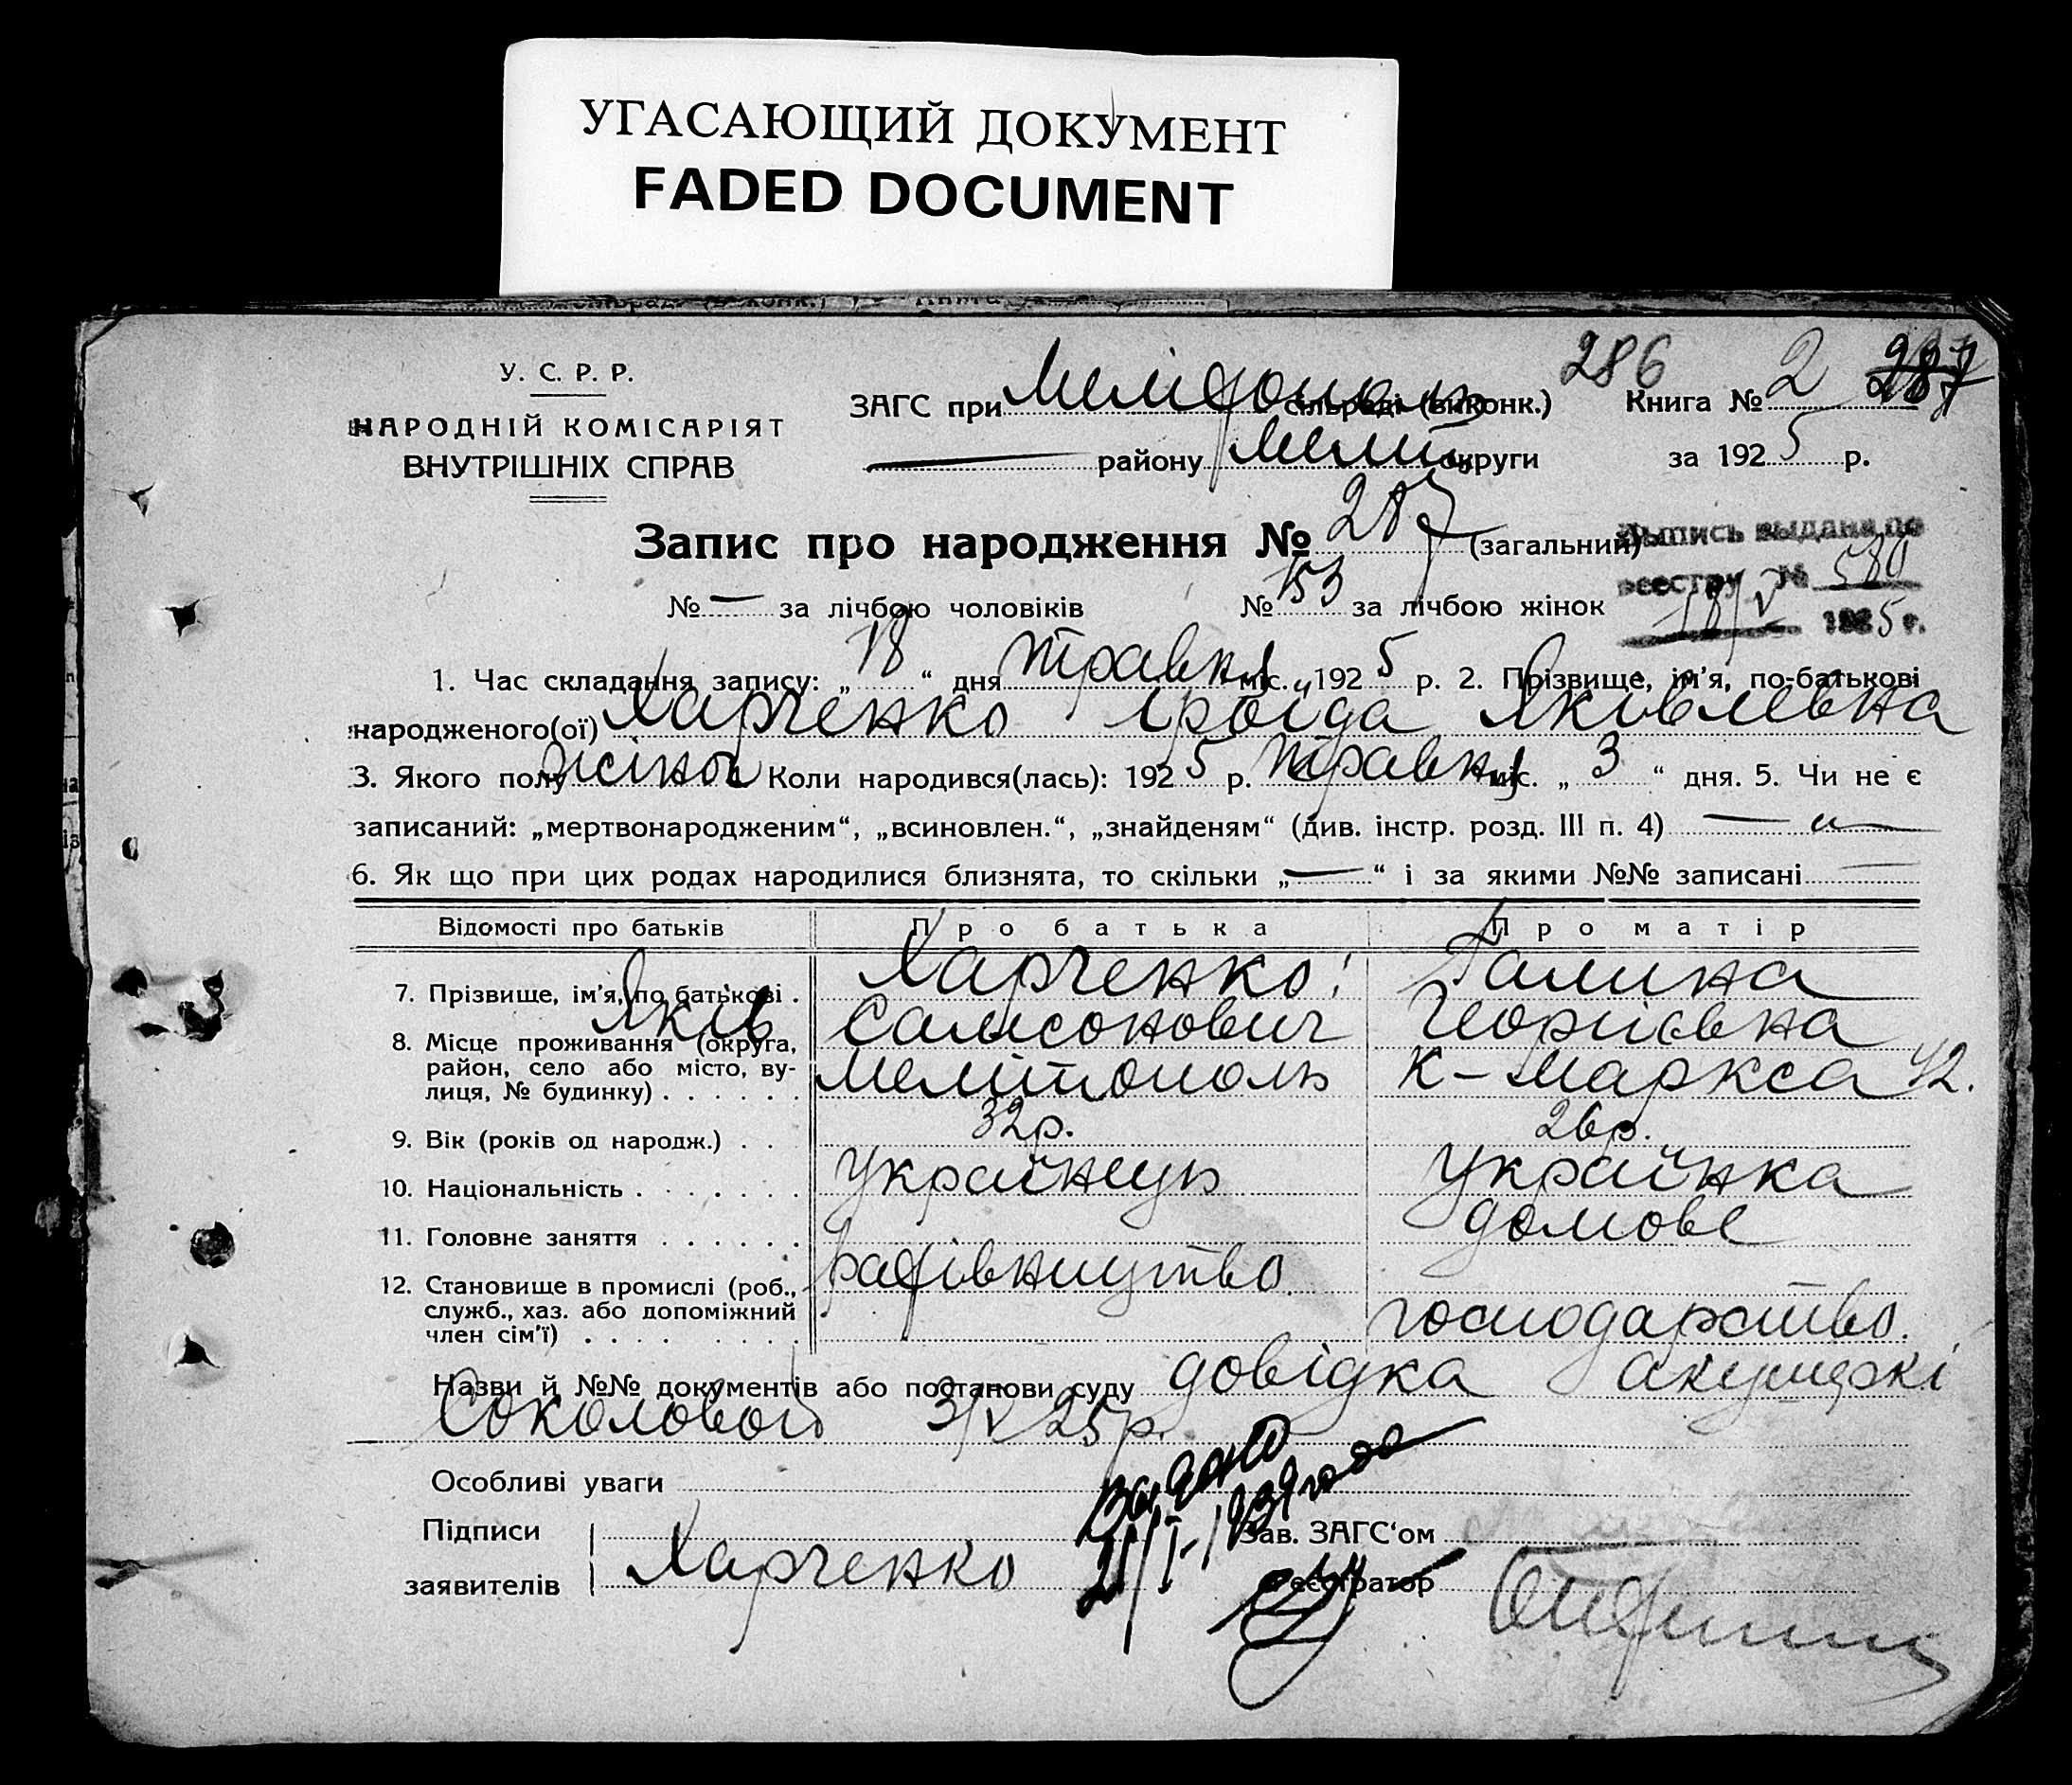 УГАСАЮЩИЙ ДОКУМЕНТ
FADED DOCUMENT
У. С. Р. Р.
НАРОДНІЙ КОМІСАРІЯТ
ВНУТРІШНІХ СПРАВ
ЗАГС при Мелітополь сільраді (виконк.) 286 Книга № 2 287
району Меліт. округи за 1925 р.
Запис про народження № 287 (загальний)
Выпись выдана по
реестру № 580
18/V 1925 г.
№ — за лічбою чоловіків № 153 за лічбою жінок
1. Час складання запису: „18“ дня травня міс. 1925 р. 2. Прізвище, ім'я, по-батькові
народженого(ої) Харченко Іроїда Яківлевна
3. Якого полу жіноч 4 Коли народився(лась): 1925 р. травня міс. „3“ дня. 5. Чи не є
записаний: „мертвонародженим“, „всиновлен.“, „знайденям“ (див. інстр. розд. III п. 4) — „ —
6. Як що при цих родах народилися близнята, то скільки „—“ і за якими №№ записані —
Відомості про батьків Про батька Про матір
7. Прізвище, ім'я, по батькові . Харченко Галина
Яків Самсонович Георгієвна
8. Місце проживання (округа,
район, село або місто, ву-
лиця, № будинку) . . . . . . Мелітополь К-Маркса 42.
9. Вік (років од народж.) . . 32р. 26р.
10. Національність . . . . . . . Українець Українка
11. Головне заняття . . . . . . домове
12. Становище в промислі (роб., рабівництво.
служб., хаз. або допоміжний
член сім'ї) . . . . . . . . господарство.
Назви й №№ документів або постанови суду довідка акушеркі
Соколовой 3/V 25р.
Особливі уваги
Видано
21/I-1939 года
Підписи
заявителів Харченко
Зав. ЗАГС‘ом
Реєстратор